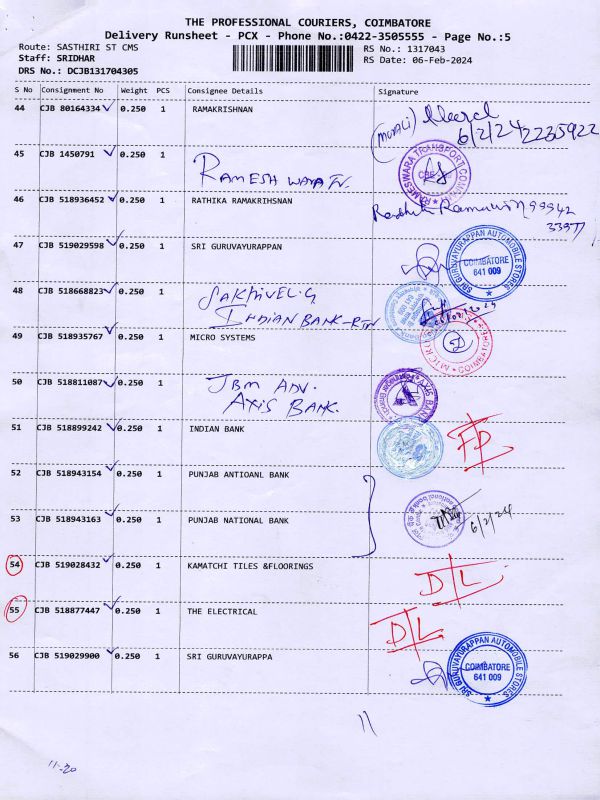 THE PROFESSIONAL COURIERS, COIMBATORE
Delivery Runsheet - PCX - Phone No.:0422-3505555 - Page No.:5
Route: SASTHIRI ST CMS RS No.: 1317043
Staff: SRIDHAR RS Date: 06-Feb-2024
DRS No.: DCJB131704305
S No Consignment No Weight PCS Consignee Details Signature
44 CJB 80164334 0.250 1 RAMAKRISHNAN
6/2/24 2235922
45 CJB 1450791 0.250 1 RAMESH
RAMESWARA TRANSPORT COMPANY
CBE
46 CJB 518936452 0.250 1 RATHIKA RAMAKRIHSNAN
99942
47 CJB 519029598 0.250 1 SRI GURUVAYURAPPAN
SRI GURUVAYURAPPAN AUTOMOBILE STORES
COIMBATORE
641 009
48 CJB 518668823 0.250 1 SAKTHIVEL.G
INDIAN BANK-RTN
49 CJB 518935767 0.250 1 MICRO SYSTEMS
50 CJB 518811087 0.250 1 JBM ADV.
AXIS BANK.
51 CJB 518899242 0.250 1 INDIAN BANK
52 CJB 518943154 0.250 1 PUNJAB ANTIOANL BANK
53 CJB 518943163 0.250 1 PUNJAB NATIONAL BANK
6/2/24
54 CJB 519028432 0.250 1 KAMATCHI TILES &FLOORINGS
D/L
55 CJB 518877447 0.250 1 THE ELECTRICAL
D/L
56 CJB 519029900 0.250 1 SRI GURUVAYURAPPA
SRI GURUVAYURAPPAN AUTOMOBILE STORES
COIMBATORE
641 009
11-20